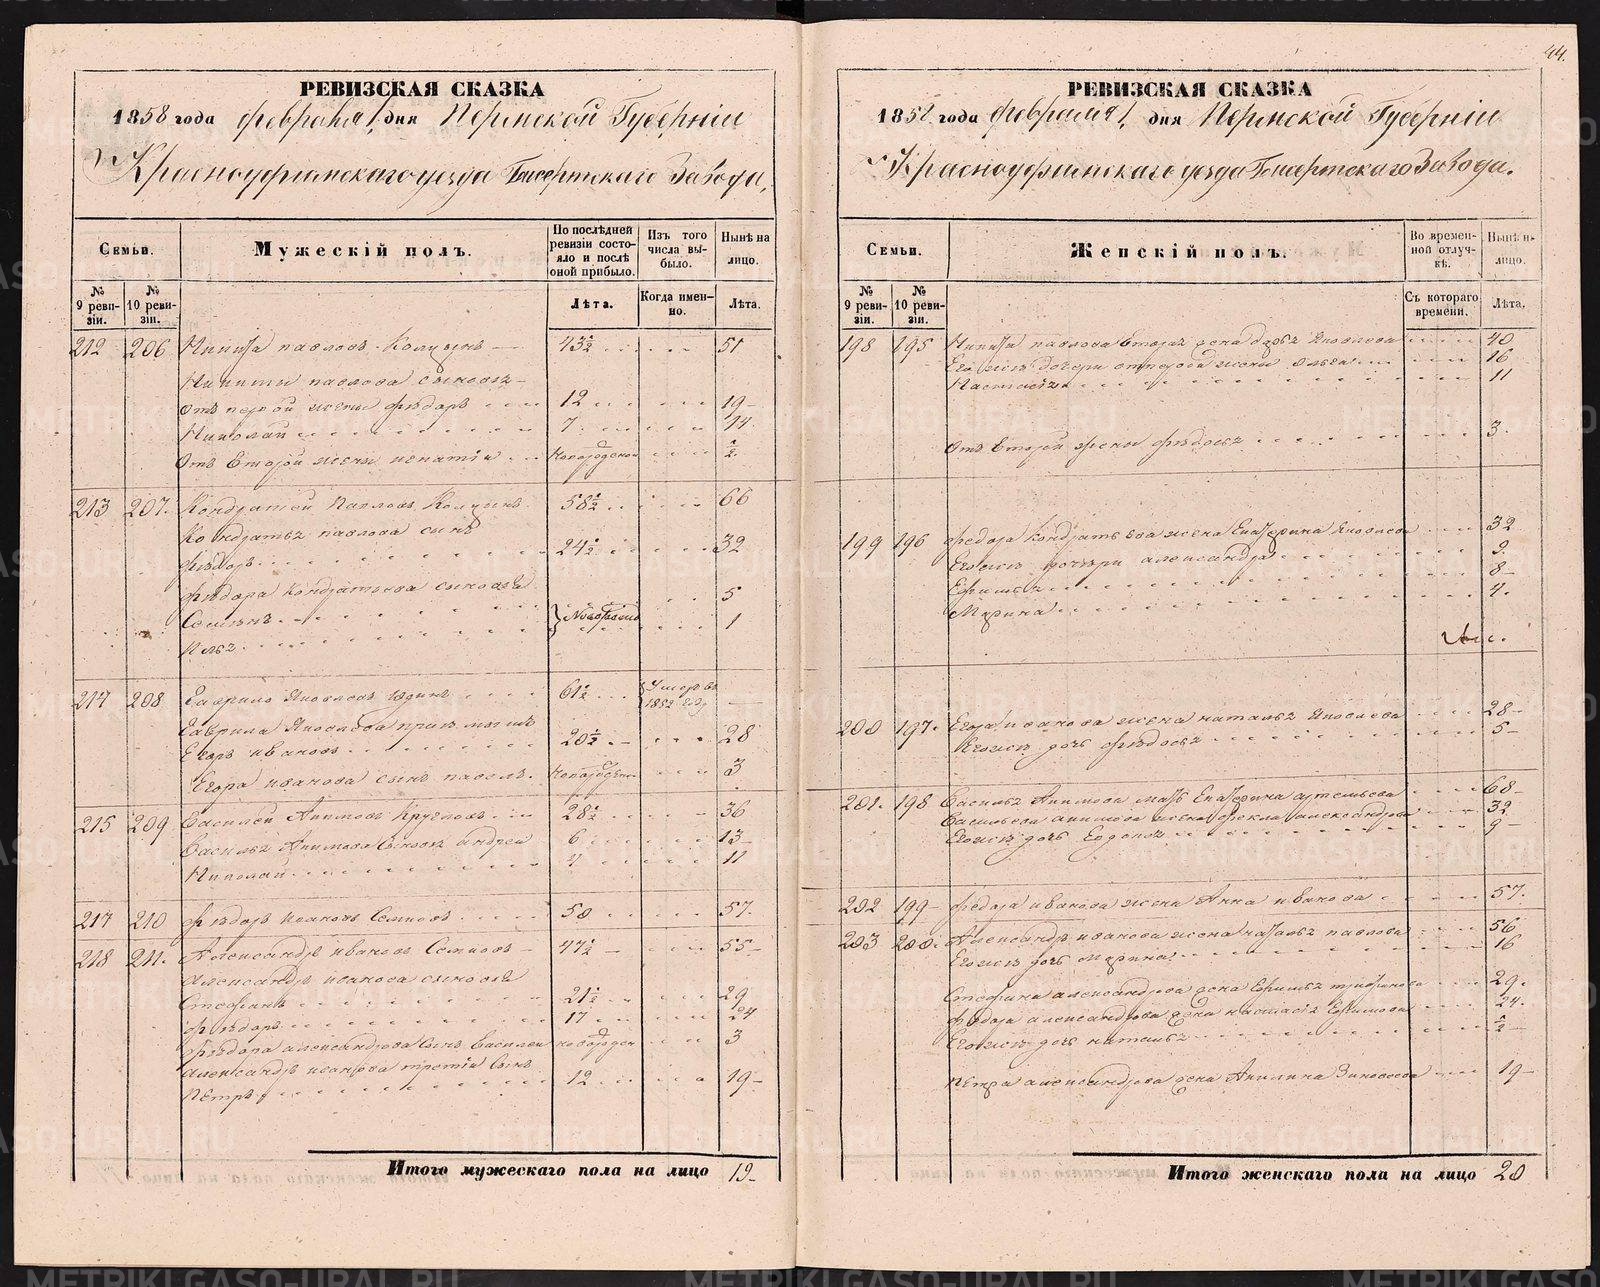 44.
РЕВИЗСКАЯ СКАЗКА
1858 года февраля 1 дня Пермской Губерніи
Красноуфимскаго уезда Бисертскаго Завода,
Семьи. Мужескій полъ. По послѣдней ревизіи состояло и послѣ оной прибыло. Изъ того числа выбыло. Нынѣ на лицо.
№ 9 ревизіи. № 10 ревизіи. Лѣта. Когда именно. Лѣта.
212 206 Никита павловъ 43½ 51
Никиты павлова сыновья
отъ первой жены фѣдоръ 12 19
Николай 7 14
отъ второй жены ипатій новорожденой ½
213 207. Кондратей Павловъ 58½ 66
Кондратья павлова сынъ
фѣдоръ 24½ 32
фѣдора кондратьева сыновья
Семенъ 5
Илья 1
214 208 Гаврило Яковлевъ 61½ Умеръ въ 1852 году
Гаврила Яковлева
Егоръ ивановъ 20½ 28
Егора иванова сынъ павелъ 3
215 209 Василей Акимовъ Кругловъ 28½ 36
Василья Акимова сыновья андрей 6 13
Николай 4 11
217 210 фѣдоръ ивановъ 50 57.
218 211. Александръ ивановъ 47½ 55
Александра иванова сыновья
Стефанъ 21½ 29
фѣдоръ 17 24
фѣдора александрова сынъ василей 3
Александра иванова третій сынъ
Пётръ 12 19
Итого мужескаго пола на лицо 19
РЕВИЗСКАЯ СКАЗКА
1858 года февраля 1 дня Пермской Губерніи
Красноуфимскаго уезда Бисертскаго Завода.
Семьи. Женскій полъ. Во временной отлучкѣ. Нынѣ на лицо.
№ 9 ревизіи. № 10 ревизіи. Съ котораго времени. Лѣта.
198 195 Никиты павлова вторая жена Яковлева 40
Его жъ дочери отъ первой жены 16
Настасья 11
отъ второй жены фѣдосья 3
199 196 Федора Кондратьева жена Екатерина Яковлева 32
Его жъ дочери александра 9
Ефимья 8
Марина 4.
200 197. Егора иванова жена наталья Яковлева 28
Его жъ дочь фѣдосья 5
201. 198 Василья Акимова мать Екатерина артемьева 68
Василья акимова жена фекла александрова 32
Его жъ дочь 9
202 199 Федора иванова жена Анна иванова 57.
203 200. Александра иванова жена наталья павлова 56
Его жъ дочь Марина 16
Стефана александрова жена Ефимья трифанова 29.
Федора александрова жена настасья Ефимова 24.
Его жъ дочь наталья ½
Петра александрова жена Акилина Зиновеева 19
Итого женскаго пола на лицо 20
METRIKI.GASO-URAL.RU